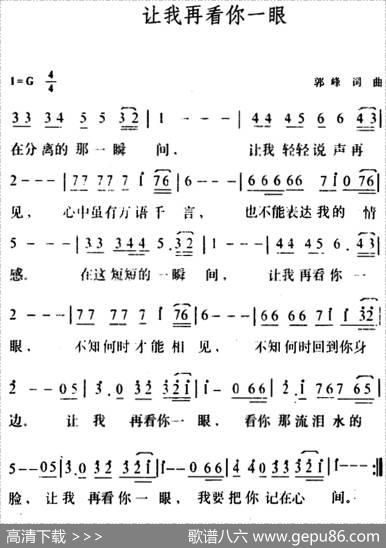 让我再看你一眼
1=G 4/4
郭峰 词 曲
33 34 5 5 32 | 1 - - - | 44 45 6 6 43 |
在分离的那一瞬 间， 让我轻轻说声再
2 - - - | 77 77 7 1 76 | 6 - - - | 66666 7 1 0 76 |
见， 心中虽有万语千言， 也不能表达我的情
5 - - - | 33 344 5 .32 | 1 - - - | 44 45 6 .43 |
感。 在这短短的一瞬间， 让我再看你一
2 - - - | 77 77 7 1 76 | 6 - - - | 66 66 7 1 1 32 |
眼， 不知何时才能相见， 不知何时回到你身
2 - - 05 | 3.0 32 321 | 1 - 0 66 | 2.1 767 65 |
边。 让我 再看你一眼， 看你那流泪水的
5 - - 05 | 3.0 32 321 | 1 - - 066 | 44 4 0 3321 | 1 - - :||
脸，让我 再看你一眼，我要把你记在心 间。
高清下载 >>>
歌谱八六 www.gepu86.com